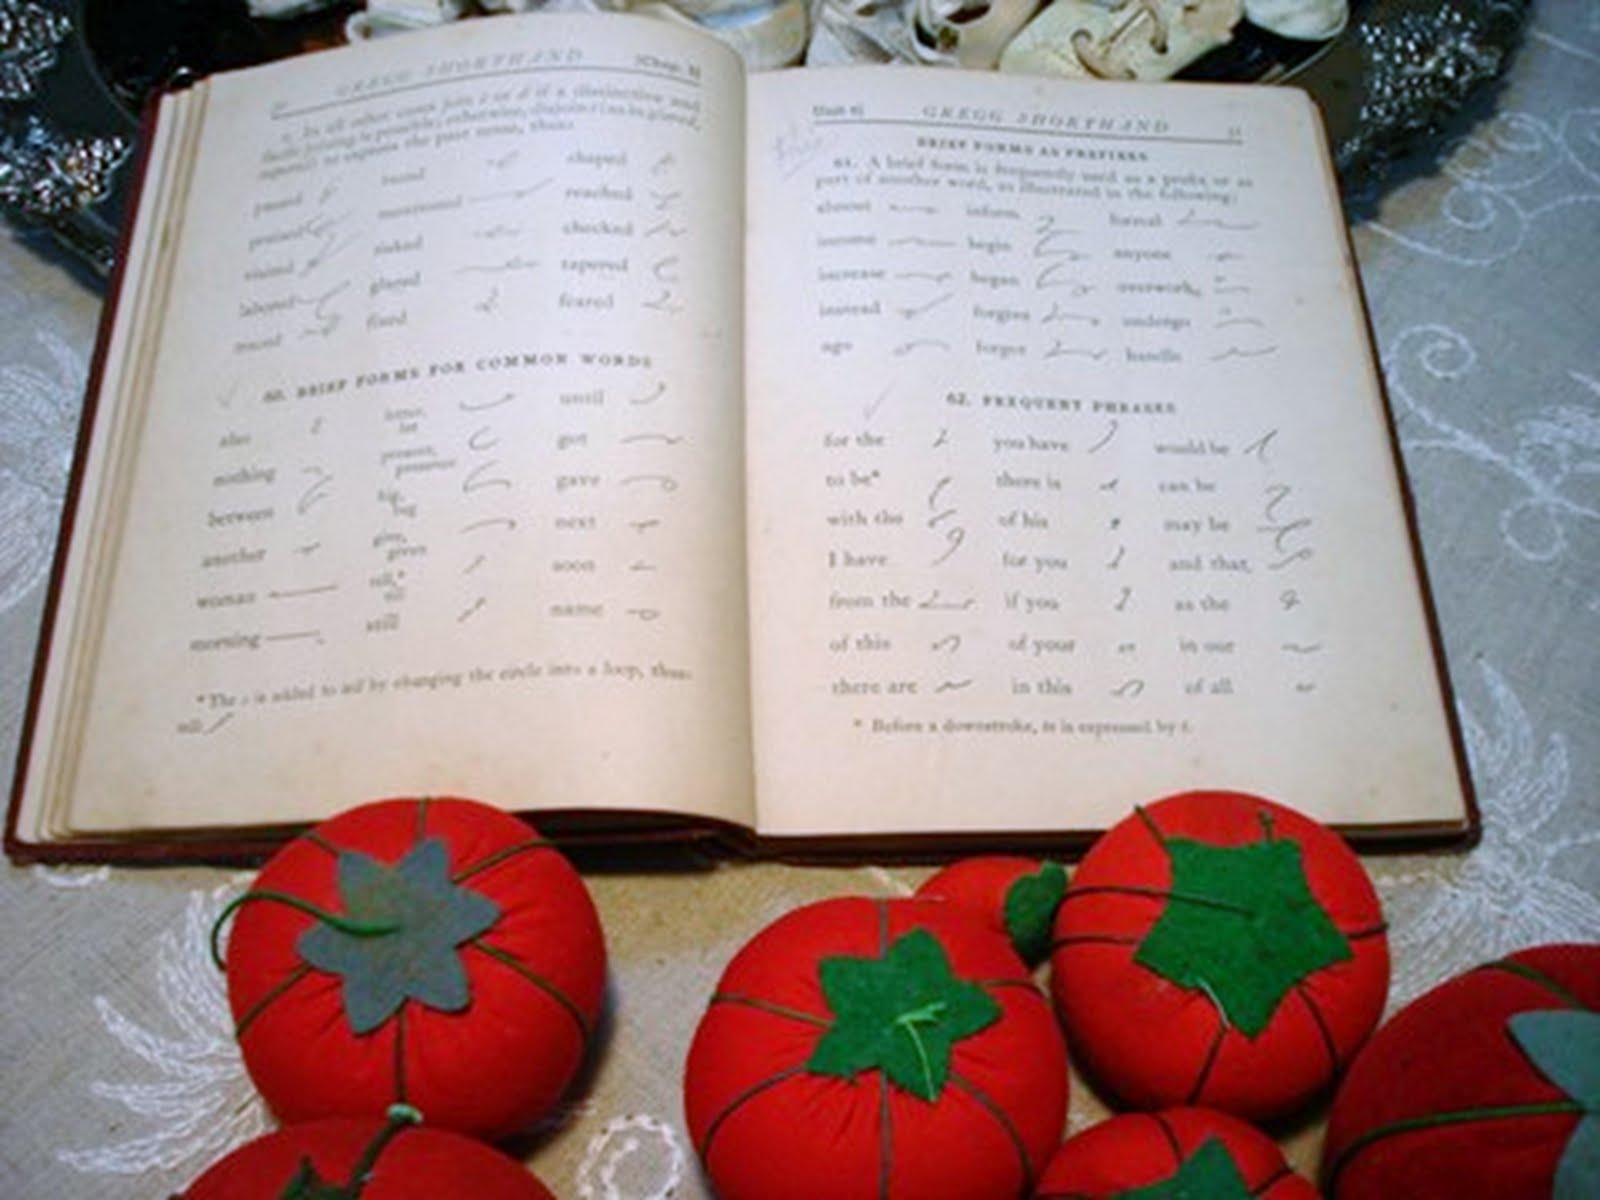 GREGG SHORTHAND [Chap. II
In all other cases join t or d if a distinctive and
facile joining is possible; otherwise, disjoin t (as in glared,
feared) to express the past tense, thus:
passed shaped
praised mentioned reached
visited risked checked
labored glared tapered
traced fixed feared
60. BRIEF FORMS FOR COMMON WORDS
also letter, let until
nothing present, presence got
between big, beg gave
another give, given next
woman tell,* till soon
morning still name
* The s is added to tell by changing the circle into a loop, thus:
tell
Unit 6] GREGG SHORTHAND 51
BRIEF FORMS AS PREFIXES
61. A brief form is frequently used as a prefix or as
part of another word, as illustrated in the following:
almost inform formal
income begin anyone
increase began overwork
instead forgive undergo
ago forget handle
62. FREQUENT PHRASES
for the you have would be
to be* there is can be
with the of his may be
I have for you and that
from the if you as the
of this of your in our
there are in this of all
* Before a downstroke, to is expressed by t.